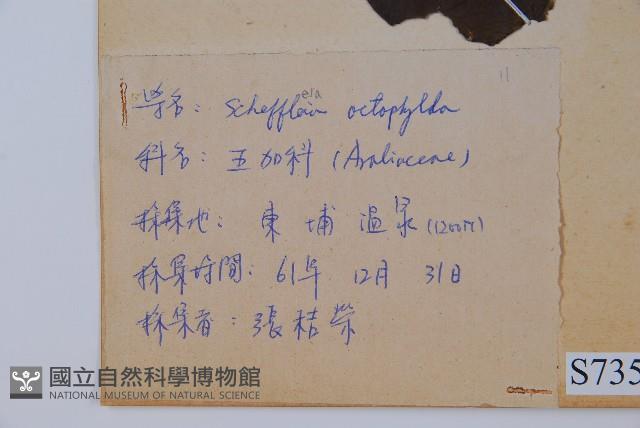 11
era
学名: Schefflera octophylla
科名: 五加科 (Araliaceae)
採集地: 東埔 温泉 (1200M)
採集時間: 61年 12月 31日
採集者: 張桔榮
國立自然科學博物館
NATIONAL MUSEUM OF NATURAL SCIENCE
S735